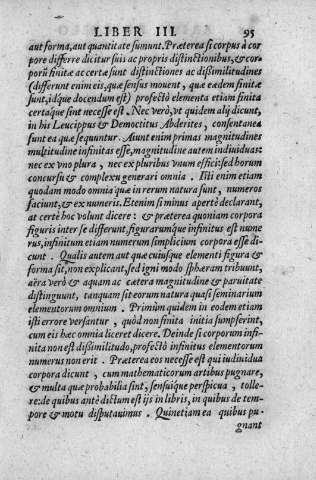 LIBER III. 95
aut forma, aut quantitate sumunt. Præterea si corpus à cor
pore differre dicitur suis ac propris distinctionibus, & cor-
porũ finitæ ac certæ sunt distinctiones ac dissimilitudines
(differunt enim eis, quæ sensus mouent, quæ eædem finitæ
sunt, idque docendum est) profectò elementa etiam finita
certaque sint necesse est. Nec verò, vt quidem alij dicunt,
in his Leucippus & Democritus Abderites, consentanea
sunt ea quæ sequuntur. Aiunt enim primas magnitudines
multitudine infinitas esse, magnitudine autem indiuiduas:
nec ex vno plura, nec ex pluribus vnum effici: sed horum
concursu & complexu generari omnia. Isti enim etiam
quodam modo omnia quæ in rerum natura sunt, numeros
faciunt, & ex numeris. Etenim si minus apertè declarant,
at certè hoc volunt dicere: & præterea quoniam corpora
figuris inter se differunt, figurarumque infinitus est nume
rus, infinitum etiam numerum simplicium corpora esse di-
cunt. Qualis autem aut quæ cuiusque elementi figura &
forma sit, non explicant, sed igni modo sphæram tribuunt,
aëra verò & aquam ac cætera magnitudine & paruitate
distinguunt, tanquam sit eorum natura quasi seminarium
elementorum omnium. Primùm quidem in eodem etiam
isti errore versantur, quòd non finita initia sumpserint,
cum eis hæc omnia liceret dicere. Deinde si corporum infi-
nita non est dissimilitudo, profectò infinitus elementorum
numerus non erit. Præterea eos necesse est qui indiuidua
corpora dicunt, cum mathematicorum artibus pugnare,
& multa quæ probabilia sint, sensuique perspicua, tolle-
re: de quibus antè dictum est ijs in libris, in quibus de tem-
pore & motu disputauimus. Quinetiam ea quibus pu-
gnant